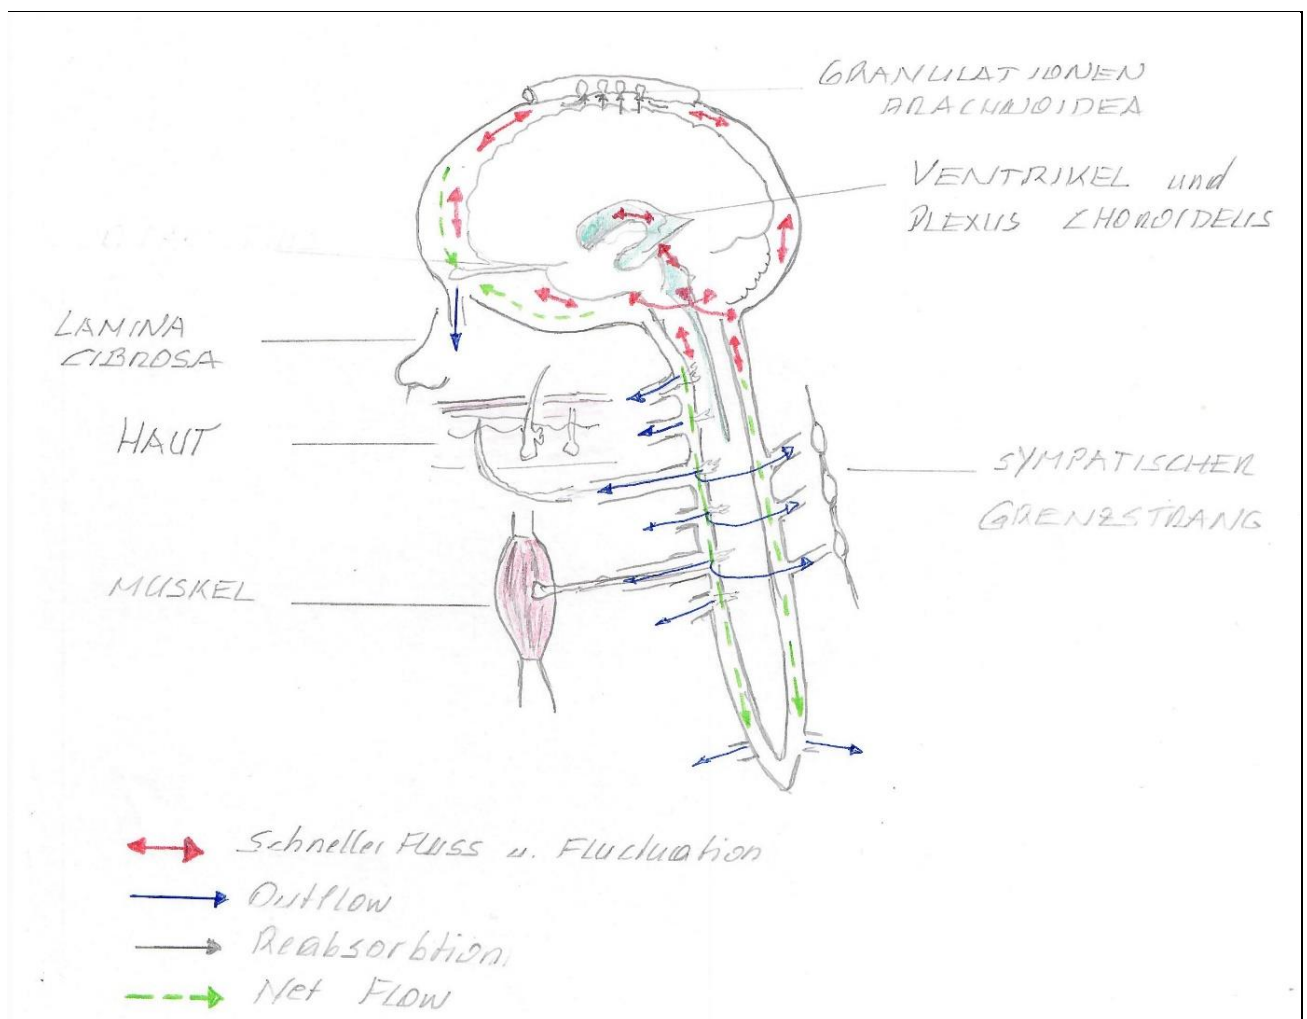 GRANULATIONEN
ARACHNOIDEA
VENTRIKEL und
PLEXUS CHOROIDEUS
LAMINA
CIBROSA
HAUT
SYMPATISCHER
GRENZSTRANG
MUSKEL
Schneller Fluss u. Fluctuation
Outflow
Reabsorbtion
Net Flow